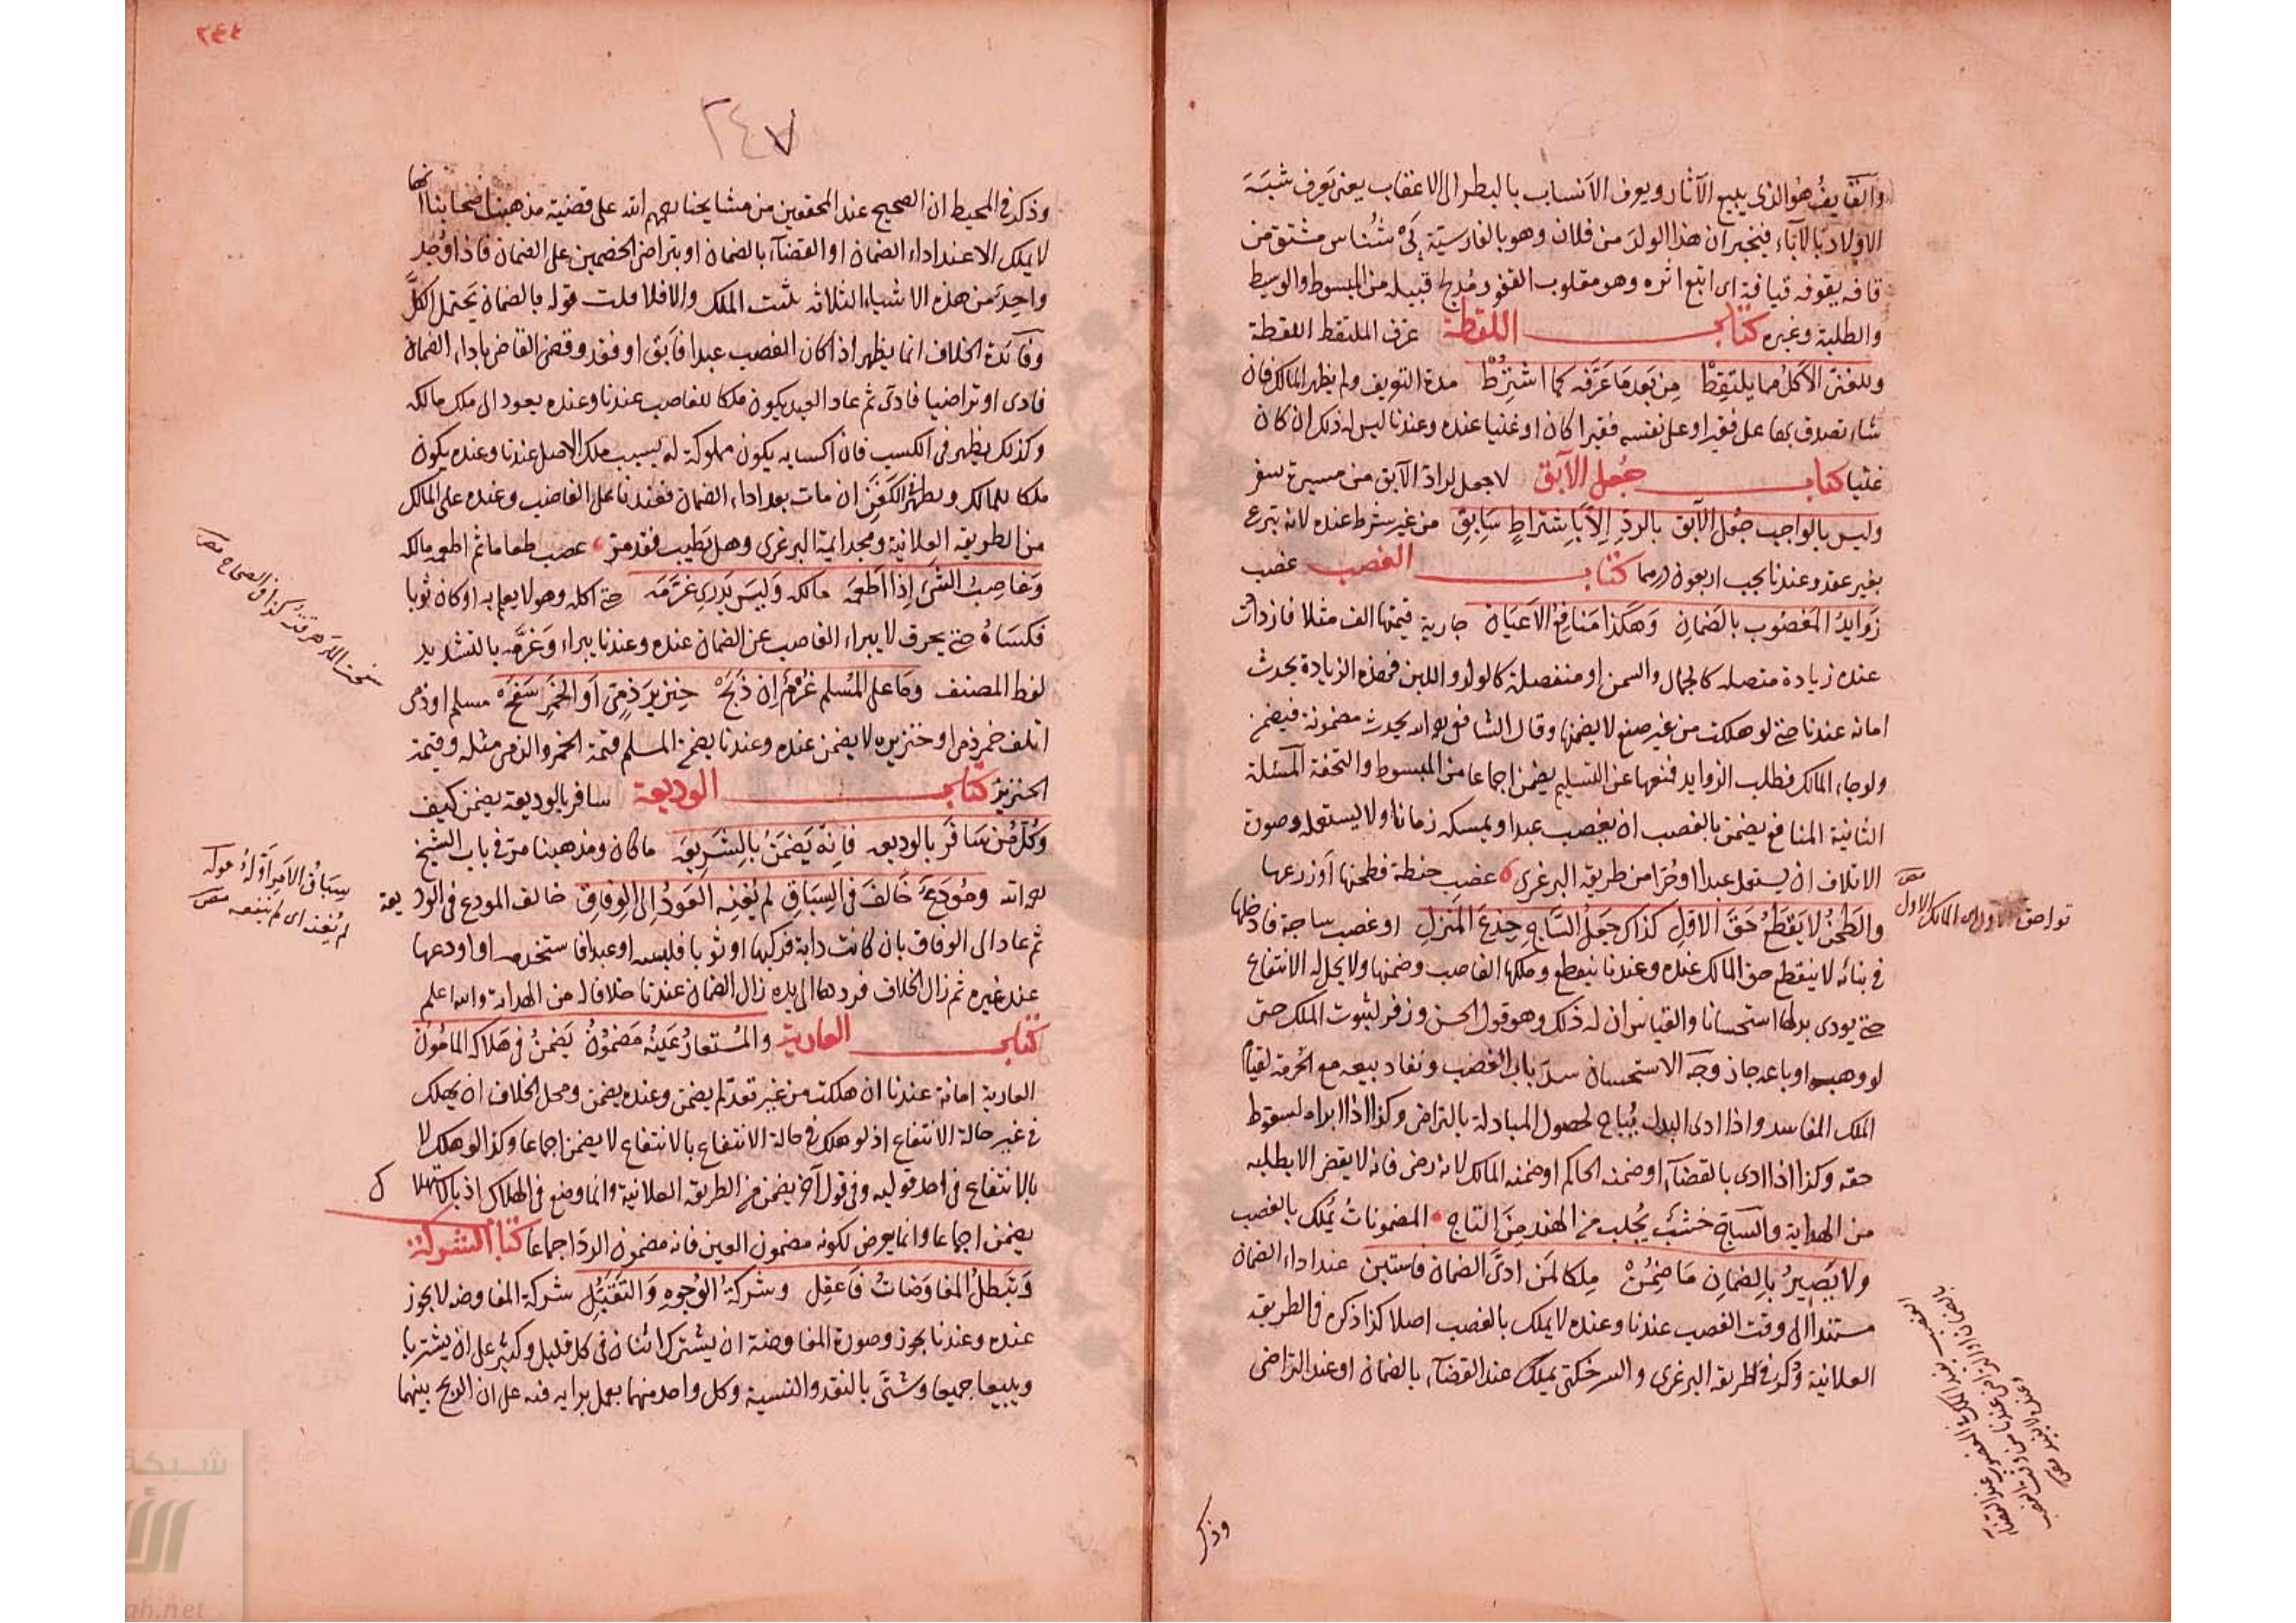 والقايف هو الذي يتبع الآثار ويعرف الأنساب بالنظر الى الاعقاب يعنى يعرف شبه
الاولاد بالآباء فيخبر ان هذا الولد من فلان وهو بالفارسية پی شناس مشتق من
قافه يقوفه قيافة اى اتبع اثره وهو مقلوب القفو قبيله من المبسوط والوسيط
والطلبة وغيره كتاب اللقطة عرف الملتقط اللقطة
وللغنى الأكل مما يلتقط من بعد ما عرفه كما اشترط مدة التعريف ولم يظهر المالك فان
شاء تصدق بها على فقير او على نفسه فقيرا كان او غنيا عنده وعندنا ليس له ذلك ان كان
غنيا كتاب جعل الآبق لا جعل لراد الآبق من مسيرة سفر
وليس بالواجب جعل الآبق بالرد إلا باشتراط سابق من غير شرط عنده لانه تبرع
بغير عقد وعندنا يجب اربعون درهما كتاب الغصب غصب
زوايد المغصوب بالضمان وهكذا منافع الاعيان جارية قيمتها الف مثلا فازدادت
عنده زيادة متصله كالجمال والسمن او منفصلة كالولد واللبن فهذه الزيادة يحدث
امانه عندنا حتى لو هلكت من غير صنع لا يضمنها وقال الشافعى رحمه الله يحدث مضمونة فيضمن
ولو جاء المالك فطلب الزوايد فمنعها عن التسليم يضمن اجماعا من المبسوط والتحفة المسئلة
الثانية المنافع يضمن بالغصب ان يغصب عبدا ويمسكه زمانا ولا يستعمله وصورة
الاتلاف ان يستعمل عبدا او حرا من طريقه البرغرى غصب حنطة فطحنها او زرعها
والطحن لا يقطع حق الاول كذاك جعل الساج جذع المنزل او غصب ساجة فادخلها
فى بنائه لا ينقطع حق المالك عنده وعندنا ينقطع وملكها الغاصب وضمنها ولا يحل له الانتفاع
حتى يودى بدلها استحسانا والقياس ان له ذلك وهو قول الحسن وزفر لثبوت الملك حتى
لو وهبه او باعه جاز وجه الاستحسان سد باب الغصب ونفاد بيعه مع الحرمة لقيام
الملك الفاسد واذا ادى البدل يباح لحصول المبادلة بالتراضى وكذا اذا ابراه لسقوط
حقه وكذا اذا ادى بالقضاء او ضمنه الحاكم او ضمنه المالك لانه رضى فانه لا يقضى الا بطلبه
من الهداية والساج خشب يجلب من الهند من التاج المضمونات يملك بالغصب
ولا يصير بالضمان ما ضمن ملكا لمن ادى الضمان فاستبن عند اداء الضمان
مستندا الى وقت الغصب عندنا وعنده لا يملك بالغصب اصلا كذا ذكره فى الطريقه
العلائية وذكر فى طريقه البرغرى والسرخكتى يملك عند القضاء بالضمان او عند التراضى
وذكر
٢٤٤
٢٤٧
وذكر فى المحيط ان الصحيح عند المحققين من مشايخنا رحمهم الله على قضية مذهب اصحابنا انها
لا يملك الا عند اداء الضمان او القضاء بالضمان او بتراضى الخصمين على الضمان فاذا وجد
واحد من هذه الاشياء الثلاثه يثبت الملك والا فلا قلت قوله بالضمان يحتمل الكل
وفائدة الخلاف انما يظهر اذا كان الغصب عبدا فابق او فقد وقضى القاضى باداء الضمان
فادى او تراضيا فادى ثم عاد العبد يكون ملكا للغاصب عندنا وعنده يعود الى ملك مالكه
وكذلك يظهر فى الكسب فان اكسابه يكون مملوكة له بسبب ملك الاصل عندنا وعنده يكون
ملكا للمالك ويظهر الكفن ان مات بعد اداء الضمان فعندنا على الغاصب وعنده على المالك
من الطريقه العلائية ومجد ايمة البرغرى وهل يطيب فقد مر غصب طعاما ثم اطعمه مالكه
وغاصب الشئ إذا أطعمه مالكه وليس يدرى غرمه حتى اكله وهو لا يعلم به او كان ثوبا
فكساه حتى يحرق لا يبراء الغاصب عن الضمان عنده وعندنا يبراء وغرمه بالتشديد
لفظ المصنف وما على المسلم غرم إن ذبح خنزير ذمى أو الخمر سفح مسلم او ذمى
اتلف خمر ذمى او خنزيره لا يضمن عنده وعندنا يضمن المسلم قيمة الخمر والذمى مثله وقيمة
الخنزير كتاب الوديعة سافر بالوديعة يضمن كيف
وكل من سافر بالوديعه فإنه يضمن بالشريعه ما كان ومذهبنا مر فى باب الشيخ
رحمه الله ومودع خالف فى السباق لم يغنه العود إلى الوفاق خالف المودع فى الوديعة
ثم عاد الى الوفاق بان كانت دابة فركبها او ثوبا فلبسه او عبدا فاستخدمه او اودعها
عند غيره ثم زال الخلاف فردها الى يده زال الضمان عندنا خلافا له من الهداية والله اعلم
كتاب العارية والمستعار عينه مضمون يضمن فى هلاكه المامون
العارية امانة عندنا ان هلكت من غير تعد لم يضمن وعنده يضمن ومحل الخلاف ان يهلك
فى غير حالة الانتفاع اذ لو هلك فى حالة الانتفاع بالانتفاع لا يضمن اجماعا وكذا لو هلك لا
بالانتفاع فى احد قوليه وفى قول آخر يضمن من الطريقه العلائية وانما وضع فى الهلاك اذ بالاستهلاك
يضمن اجماعا وانما يعرض لكونه مضمون العين فانه مضمون الرد اجماعا كتاب الشركة
وتبطل المفاوضات فاعقل وشركة الوجوه والتقبل شركة المفاوضه لا يجوز
عنده وعندنا يجوز وصورة المفاوضة ان يشترك اثنان فى كل قليل وكثير على ان يشتريا
ويبيعا جميعا وشتى بالنقد والنسية وكل واحد منهما يعمل برايه فيه على ان الربح بينهما
سباق الامر اوله
لم يغنه اى لم ينفعه
شبكة
ah.net